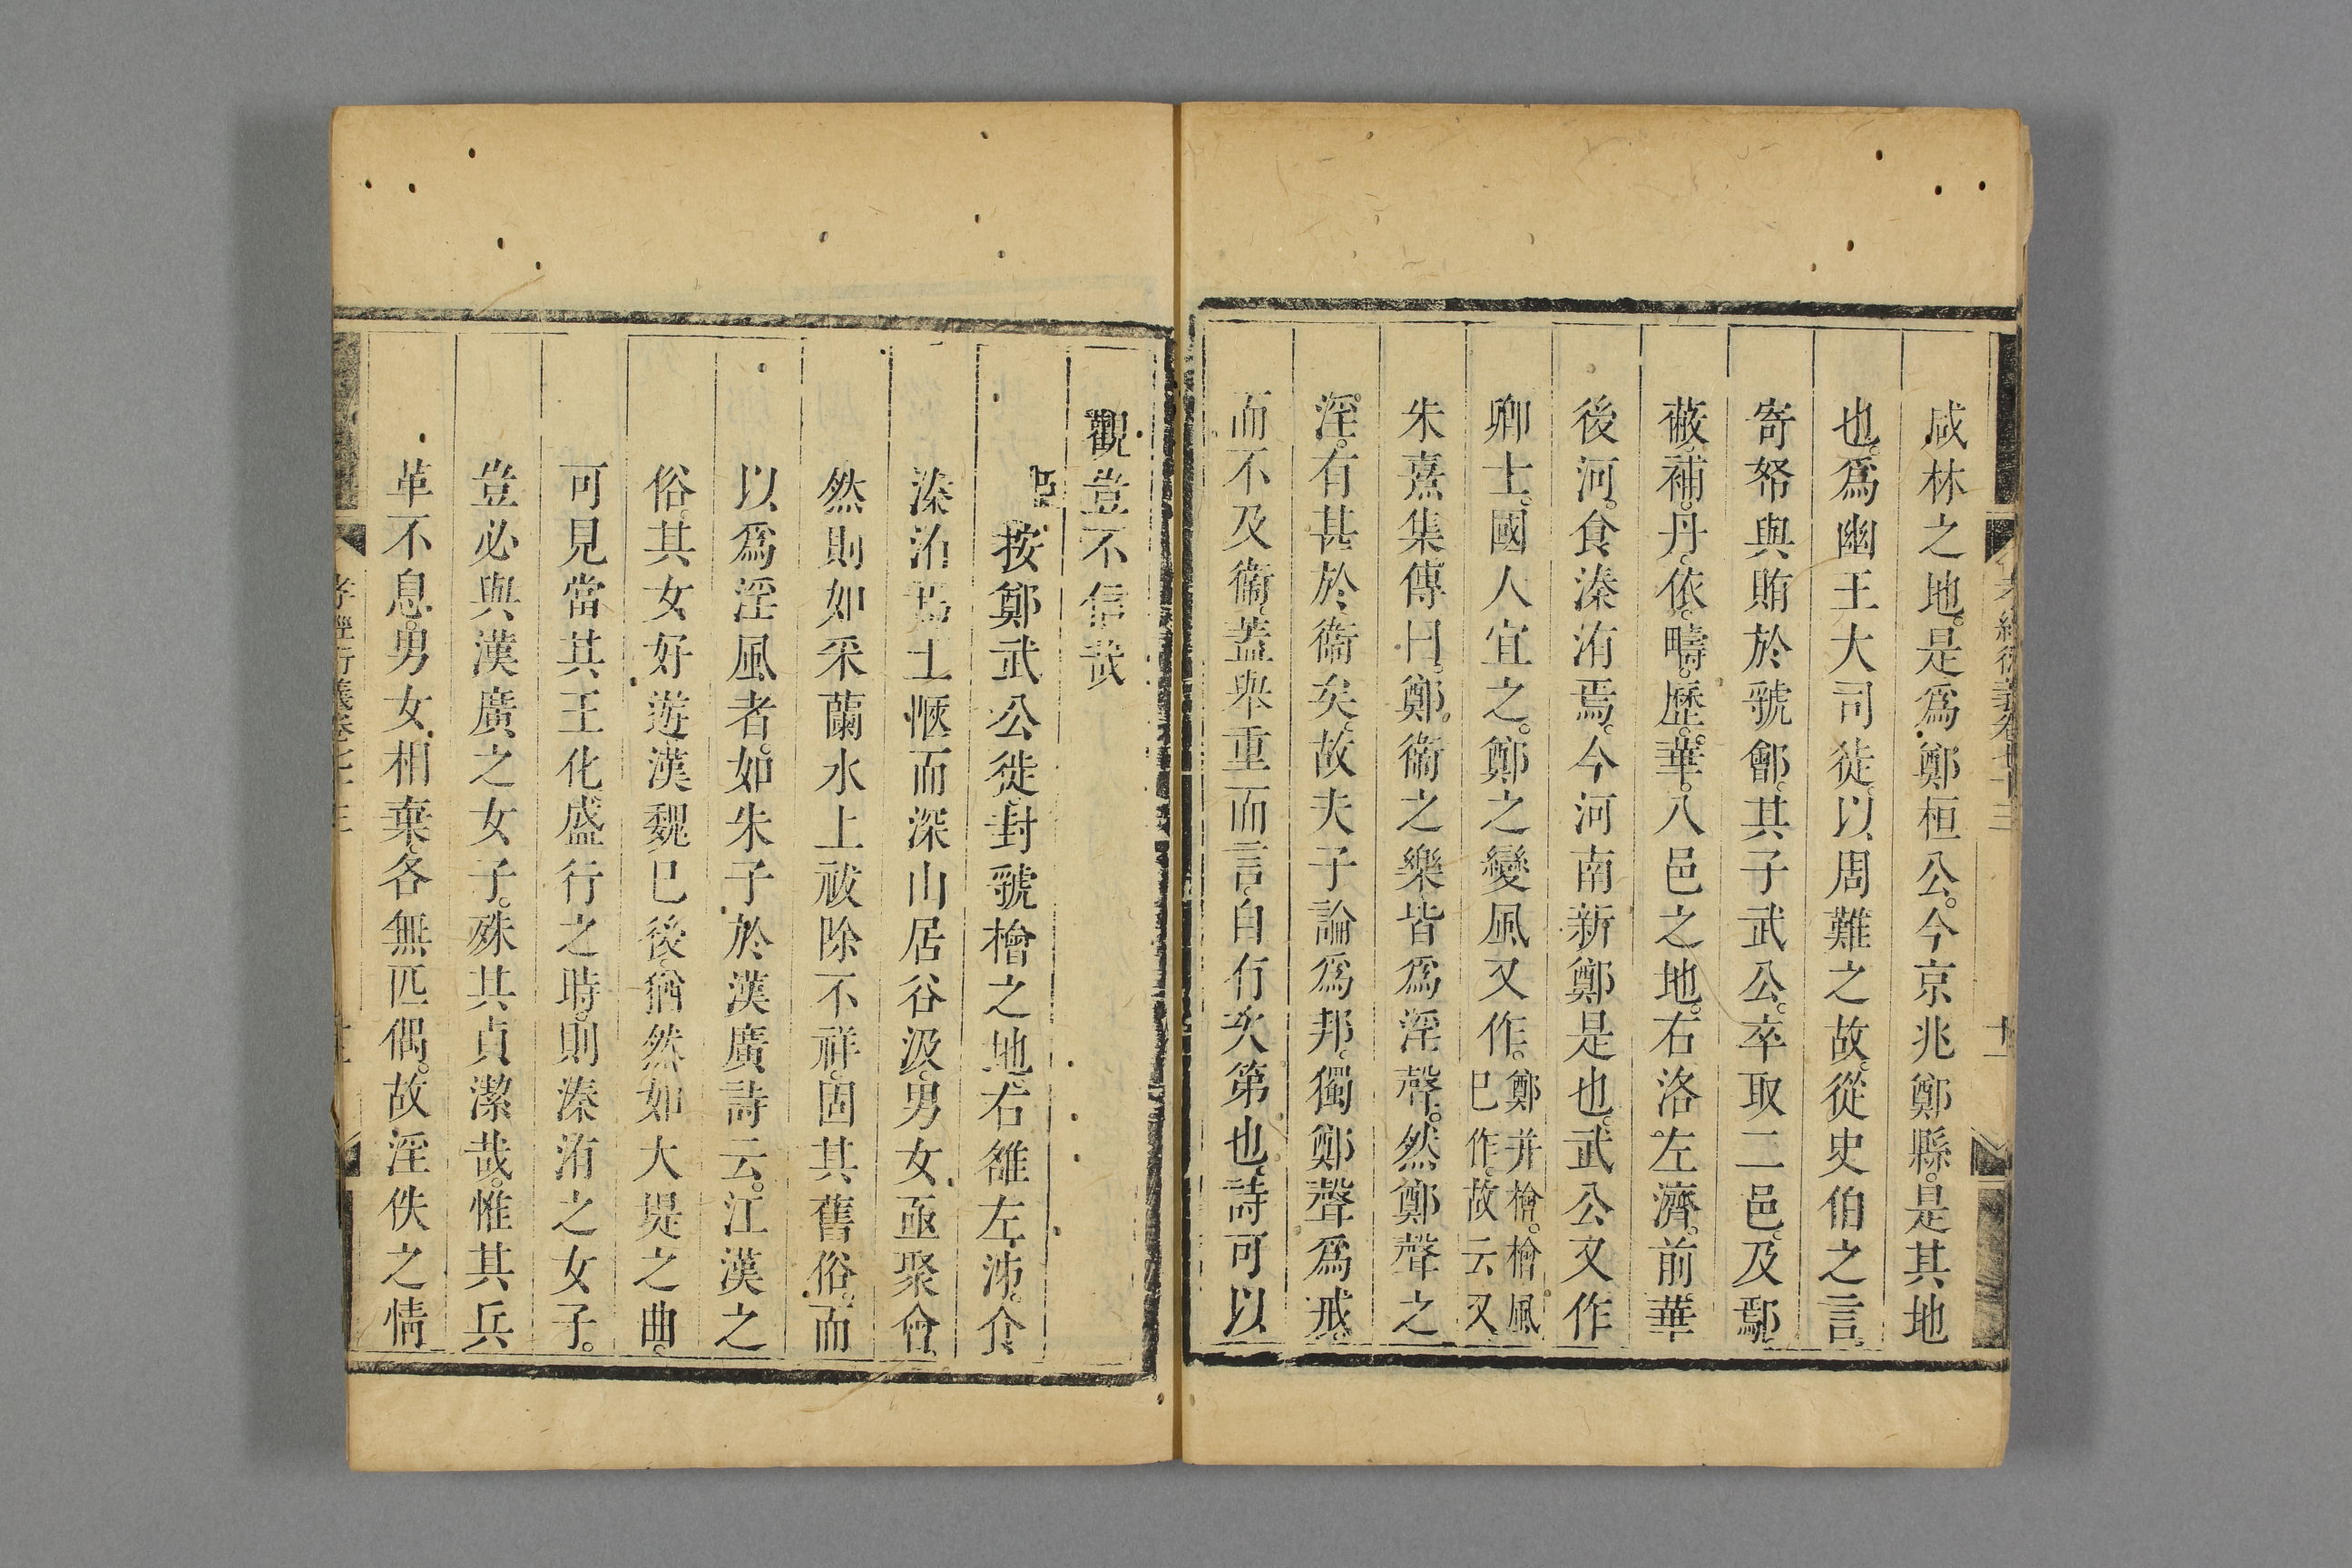 咸林之地。是爲鄭桓公。今京兆鄭縣。是其地
也。爲幽王大司徒。以周難之故。從史伯之言。
寄帑與賄於虢鄶。其子武公。卒取二邑。及鄢
蔽。補。丹。依。疇。歷。華。八邑之地。右洛。左濟。前華
後河。食溱洧焉。今河南新鄭是也。武公又作
卿士。國人宜之。鄭之變風又作。鄭并檜。檜風巳作。故云又
朱熹集傳曰。鄭衞之樂。皆爲淫聲。然鄭聲之
淫。有甚於衞矣。故夫子論爲邦。獨鄭聲爲戒。
而不及衞。蓋舉重而言。自有次第也。詩可以
觀豈不信哉
臣按鄭武公徙封虢檜之地。右雒左泲。介
溱洧焉土愜而深山居谷汲。男女亟聚會
然則如采蘭水上祓除不祥。固其舊俗。而
以爲淫風者。如朱子於漢廣詩云。江漢之
俗。其女好遊漢魏巳後。猶然如大堤之曲。
可見當其王化盛行之時。則溱洧之女子。
豈必與漢廣之女子。殊其貞潔哉。惟其兵
革不息。男女相棄。各無匹偶。故淫佚之情